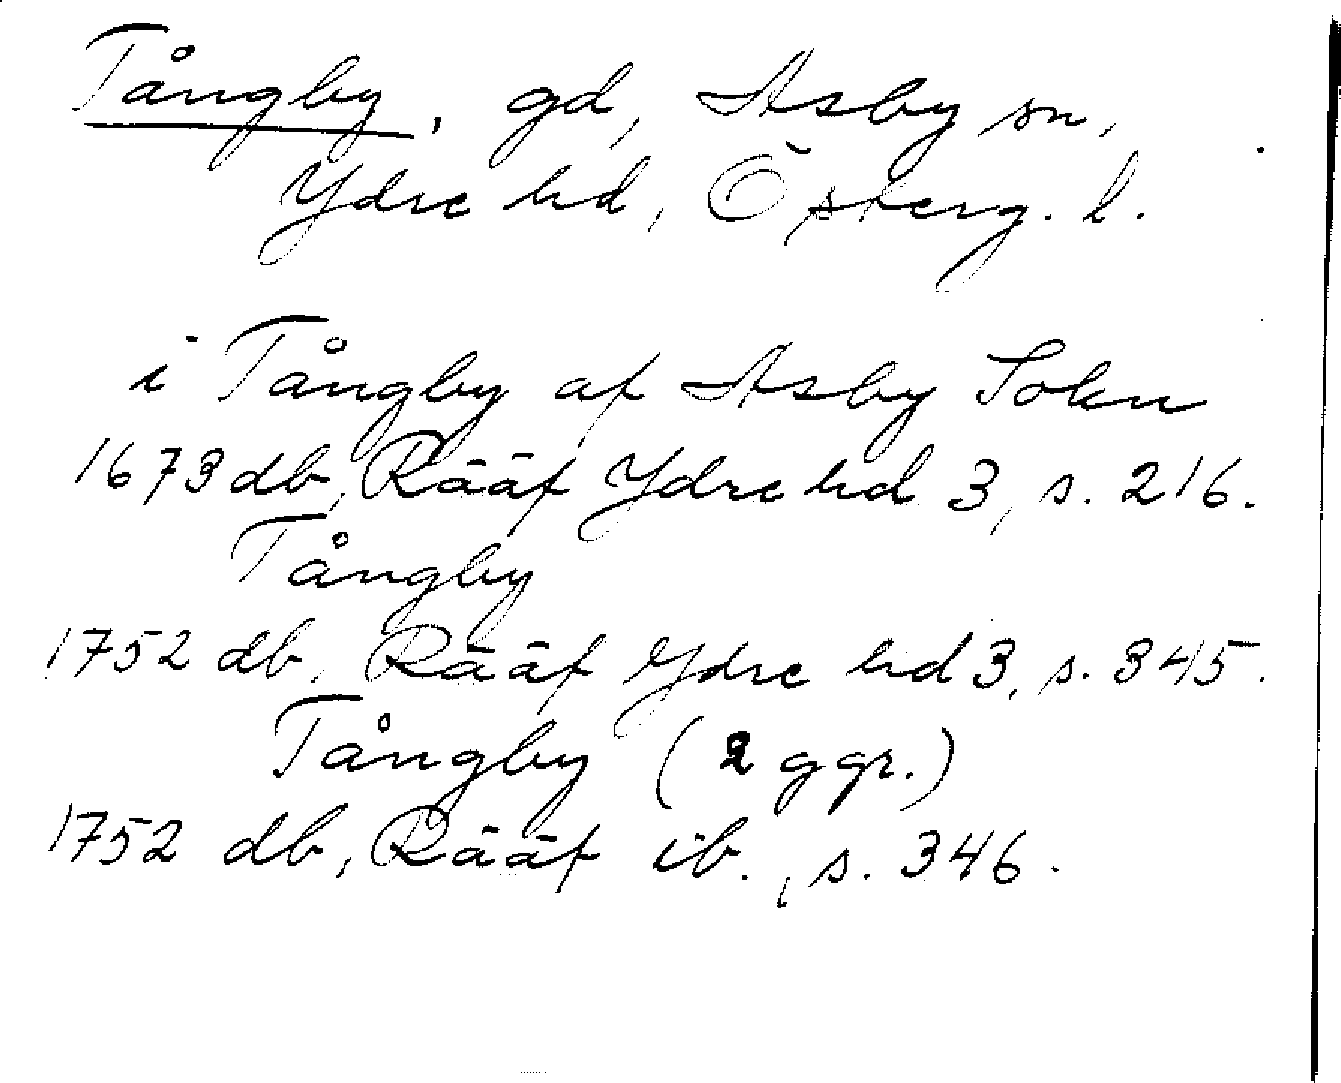 Tångby, gd, Asby sn,
Ydre hd, Österg. l.
i Tångby af Asby Sokn
1673 db, Rääf Ydre hd 3, s. 216.
Tångby
1752 db, Rääf Ydre hd 3, s. 345.
Tångby (2 ggr.)
1752 db, Rääf ib., s. 346.